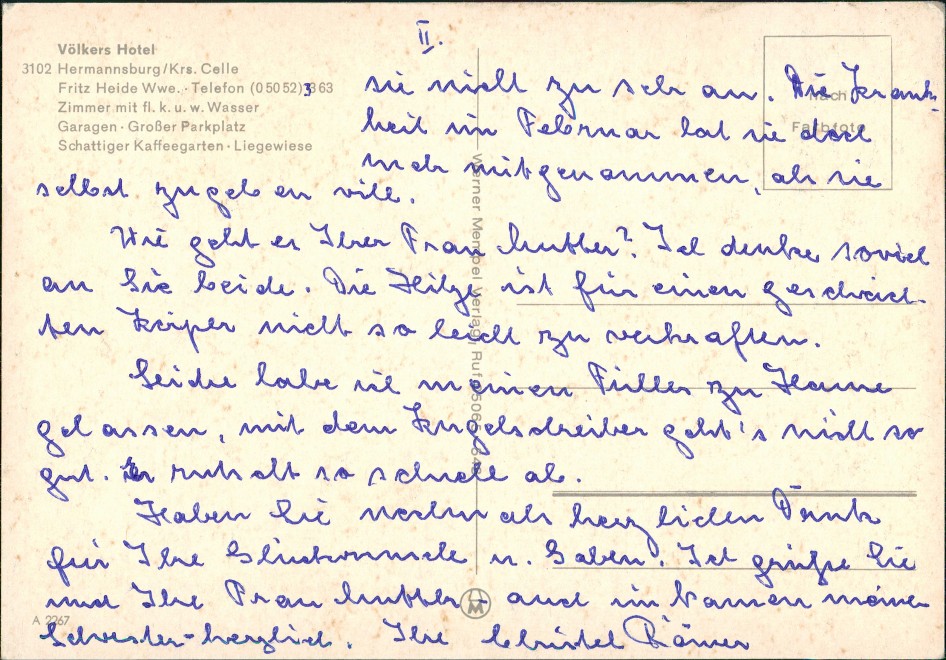 II.
Völkers Hotel
3102 Hermannsburg/Krs. Celle
Fritz Heide Wwe. · Telefon (05052) 3363
Zimmer mit fl. k. u. w. Wasser
Garagen · Großer Parkplatz
Schattiger Kaffeegarten · Liegewiese
Nach
Farbfoto
sie nicht zu sehr an. Die Krank-
heit im Februar hat sie doch
mehr mitgenommen, als sie
selbst zugeben will.
Wie geht es Ihrer Frau Mutter? Ich denke soviel
an Sie beide. Die Hitze ist für einen geschwäch-
ten Körper nicht so leicht zu verkraften.
Leider habe ich meinen Füller zu Hause
gelassen, mit dem Kugelschreiber geht's nicht so
gut. Er rutscht so schnell ab.
Haben Sie nochmals herzlichen Dank
für Ihre Glückwünsche u. Gaben. Ich grüße Sie
und Ihre Frau Mutter – auch im Namen meiner
Schwester – herzlich. Ihre Christel Römer
Werner Verlag, Ruf
A 2267